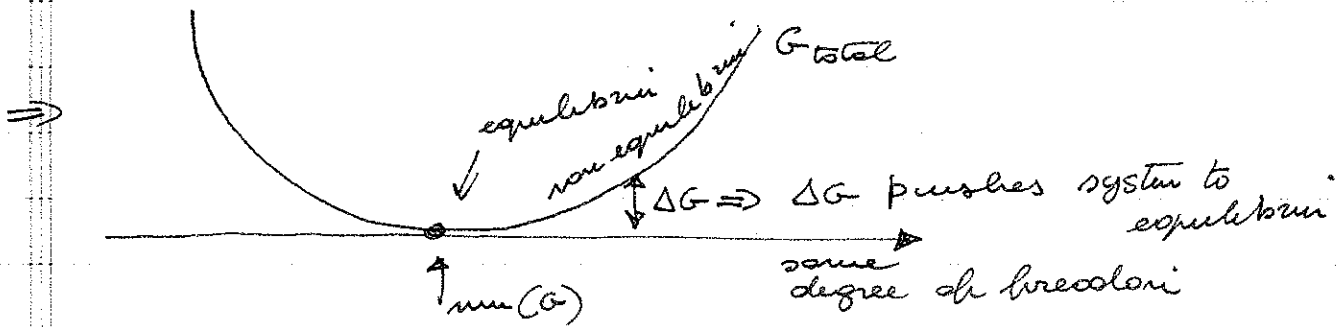 G total
equilibrium
non equilibrium
⇒
ΔG ⇒ ΔG pushes system to
equilibrium
some
degree of freedom
min(G)